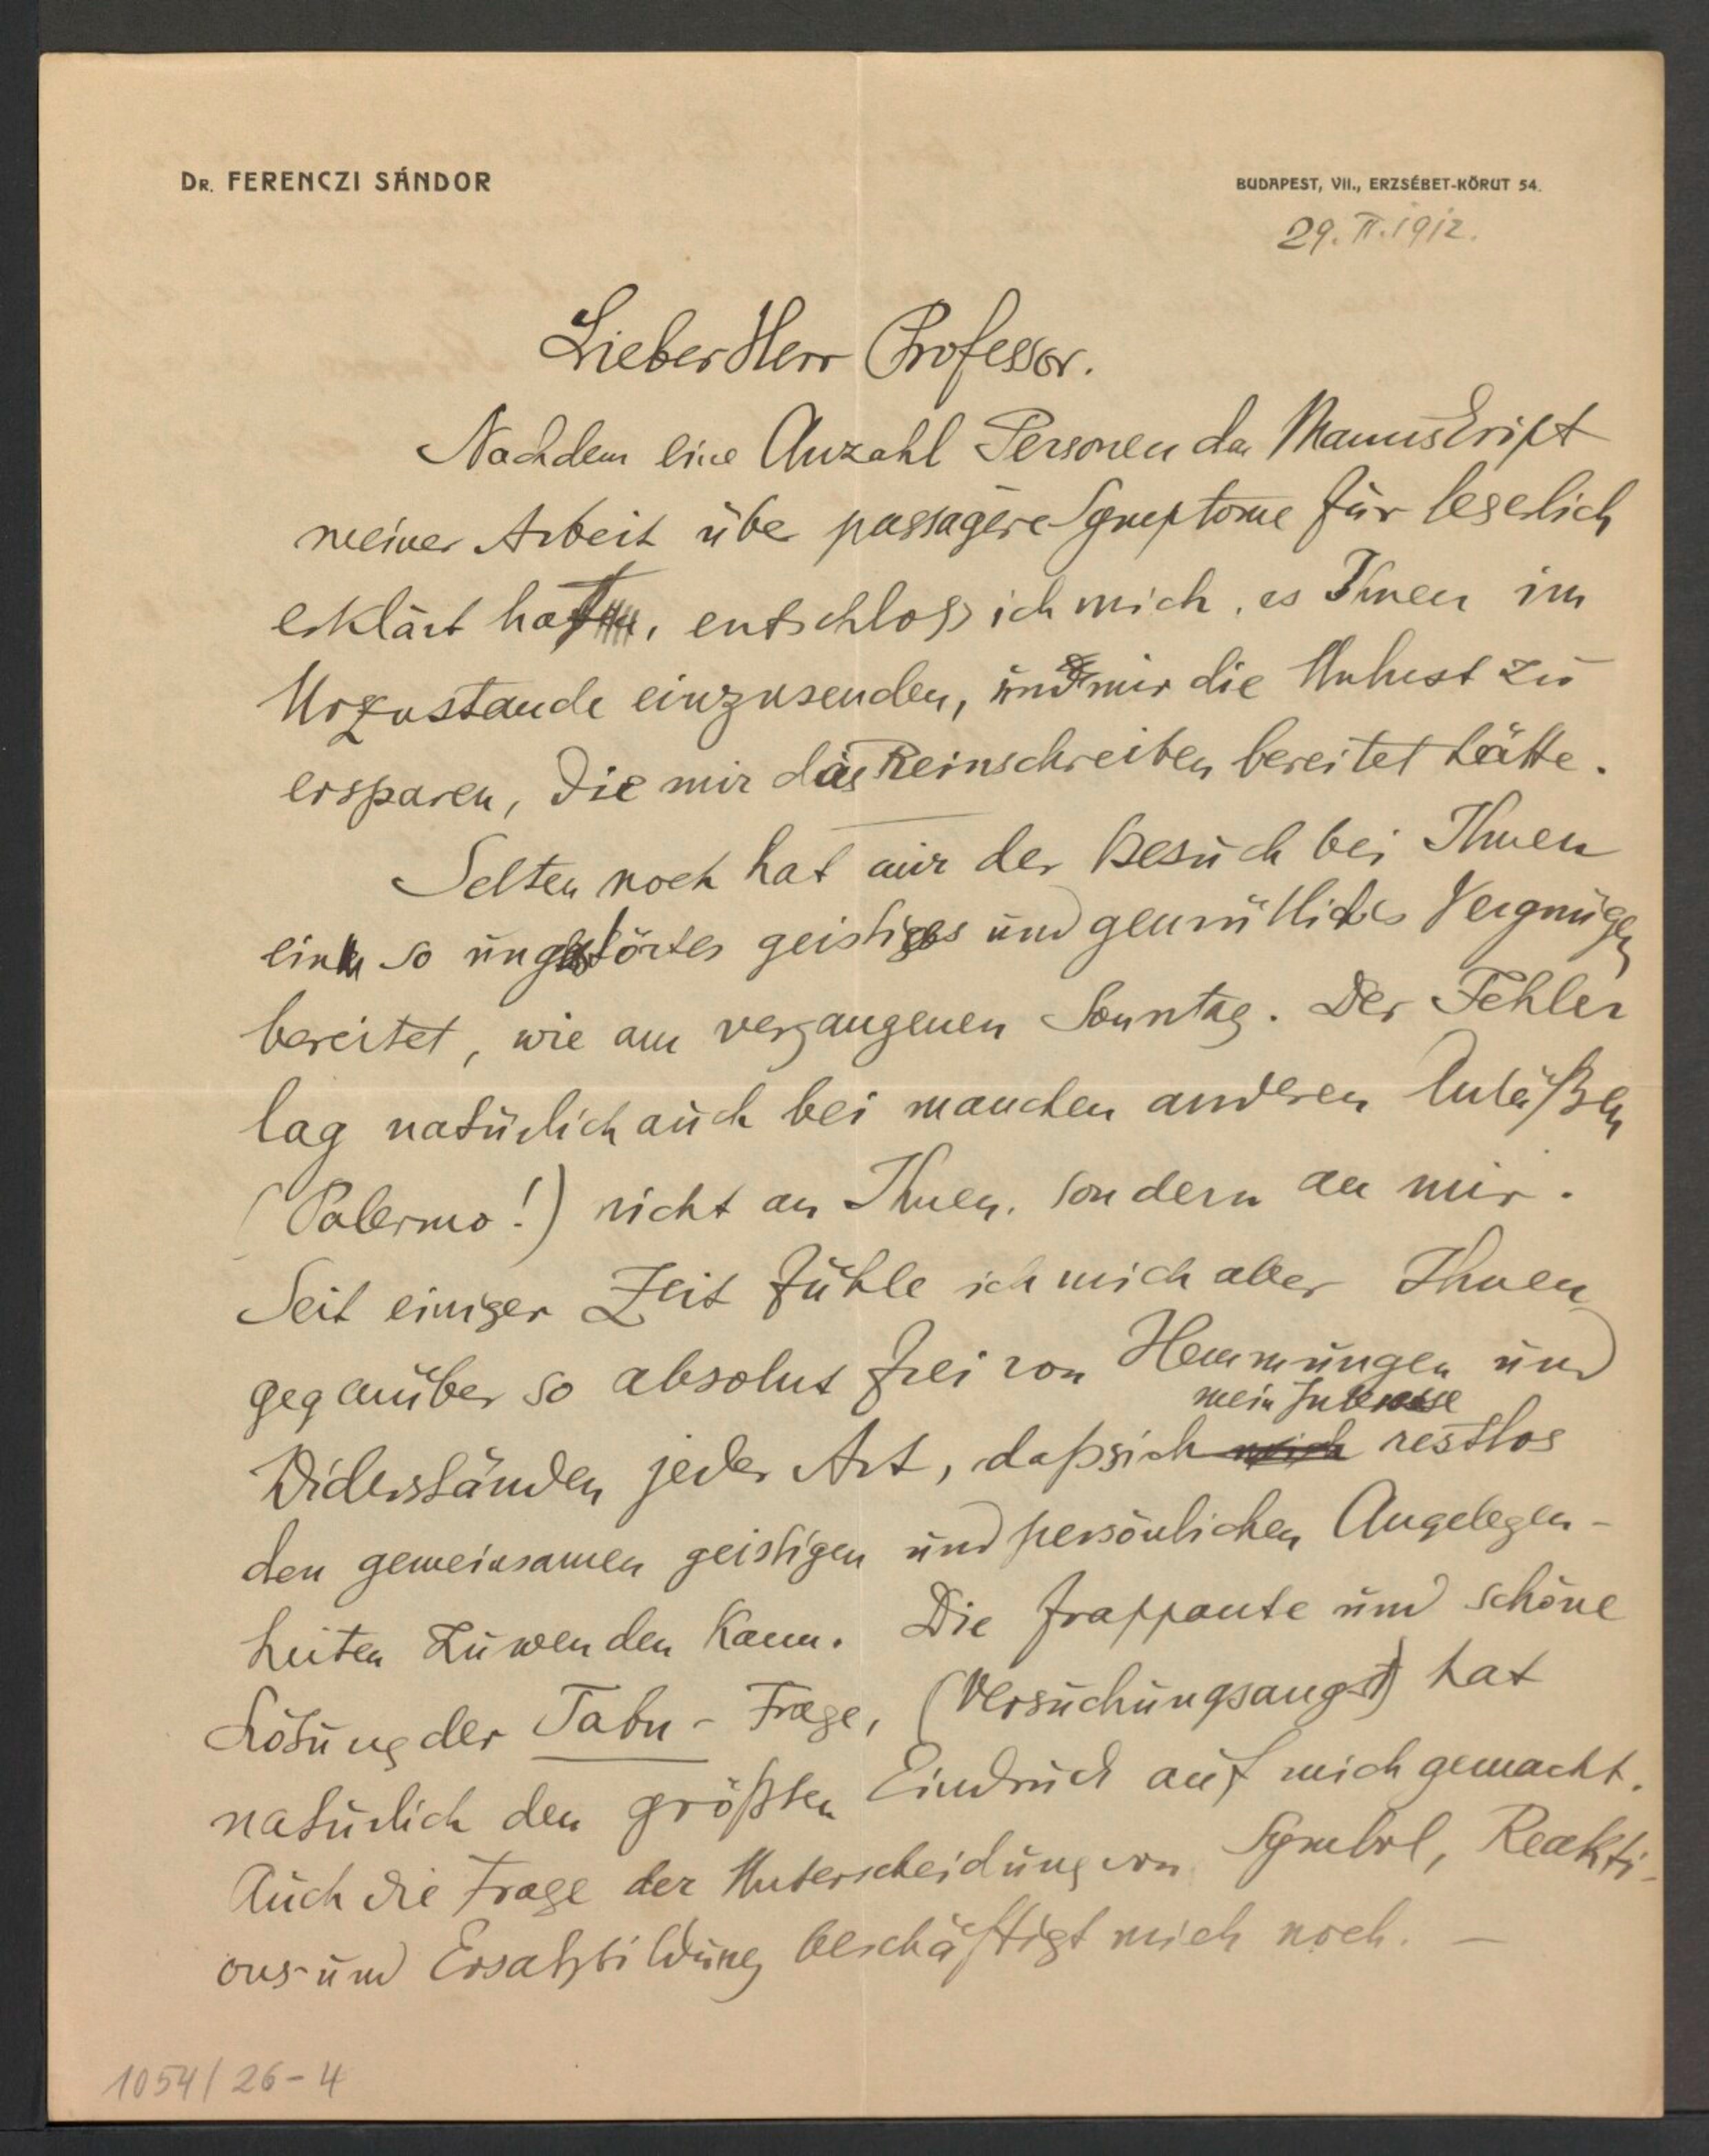 Dr. FERENCZI SÁNDOR
BUDAPEST, VII., ERZSÉBET-KÖRUT 54.
29. II. 1912.
Lieber Herr Professor.
Nachdem eine Anzahl Personen das Manuskript
meiner Arbeit über passagère Symptome für leserlich
erklärt hat, entschloß ich mich, es Ihnen im
Urzustande einzusenden, und mir die Unlust zu
ersparen, die mir das Reinschreiben bereitet hätte.
Selten noch hat mir der Besuch bei Ihnen
ein so ungestörtes geistiges und gemütliches Vergnügen
bereitet, wie am vergangenen Sonntag. Der Fehler
lag natürlich auch bei manchen anderen Anläßen
(Palermo!) nicht an Ihnen, sondern an mir.
Seit einiger Zeit fühle ich mich aber Ihnen
gegenüber so absolut frei von Hemmungen und
mein Interesse
Widerständen jeder Art, daß sich restlos
den gemeinsamen geistigen und persönlichen Angelegen-
heiten zuwenden kann. Die frappante und schöne
Lösung der Tabu-Frage, (Versuchungsangst) hat
natürlich den größten Eindruck auf mich gemacht.
Auch die Frage der Unterscheidung von Symbol, Reakti-
ons- und Ersatzbildung beschäftigt mich noch. —
1054/26-4